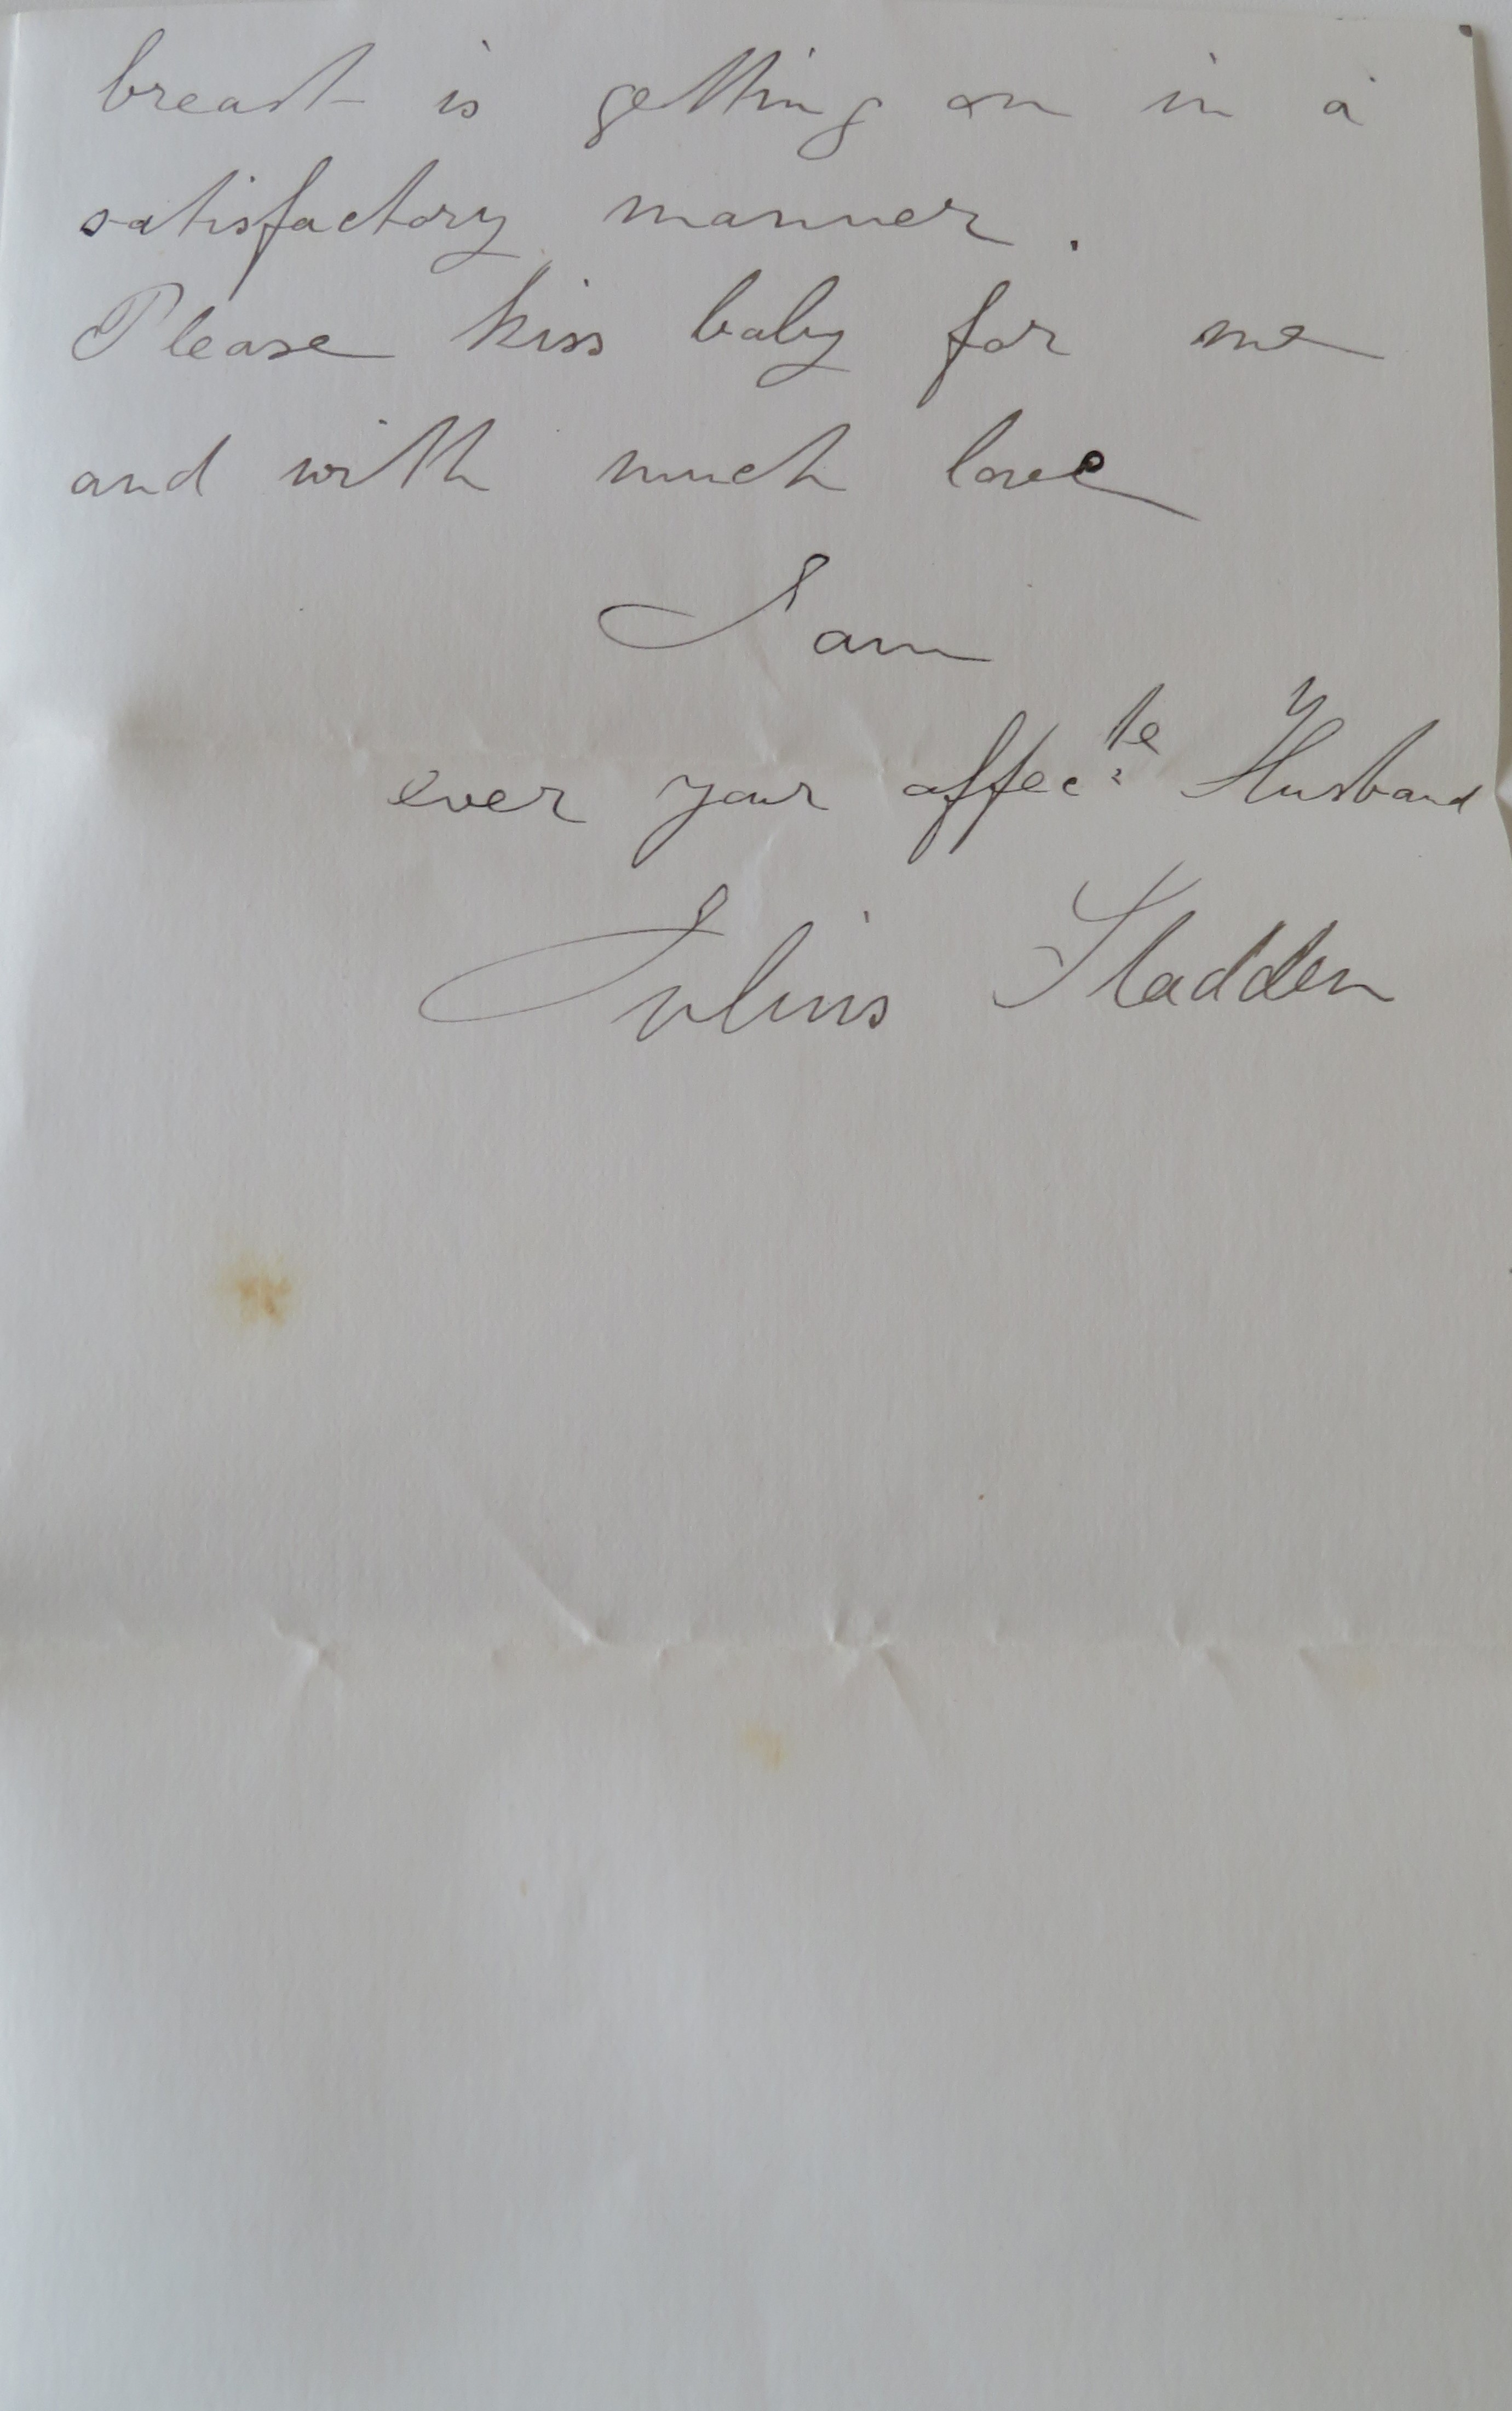 breast is getting on in a
satisfactory manner.
Please kiss baby for me
and with much love
I am
ever your affecte Husband
Julius Sladden